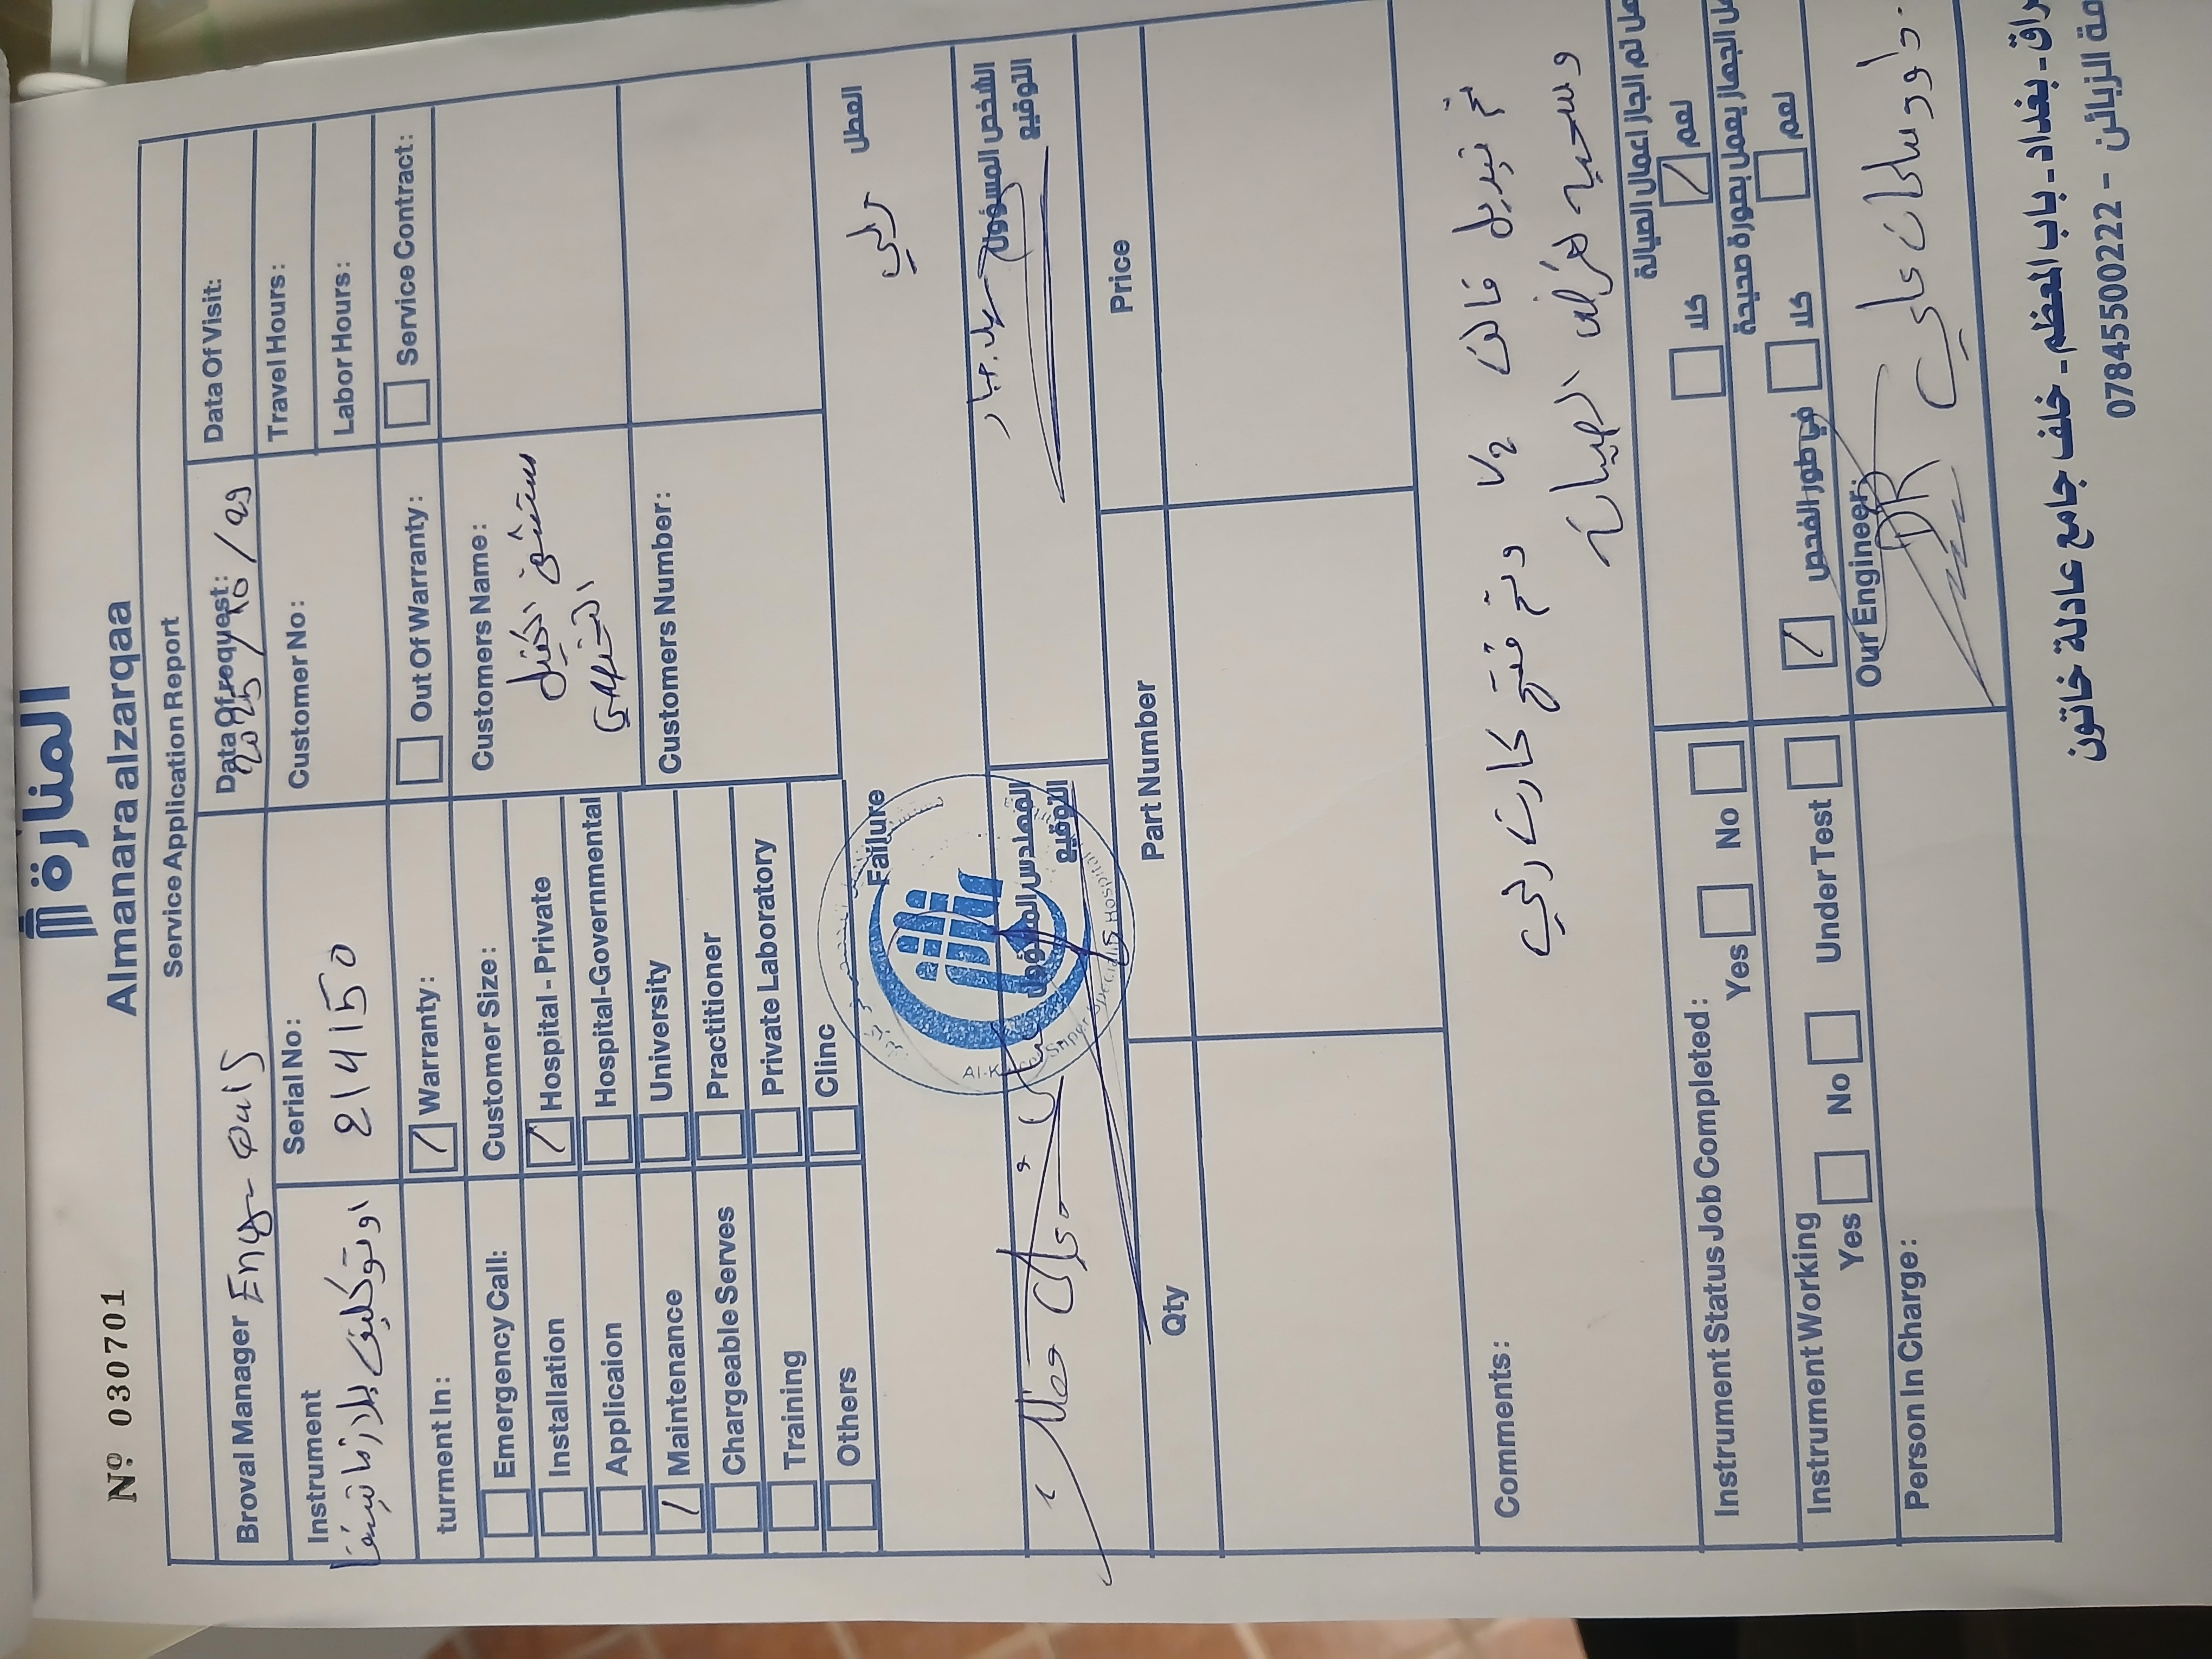 المنارة
Almanara alzarqaa
Nº 030701
Service Application Report
Broval Manager
Data Of request: 2025/10/29
Data Of Visit:
Instrument
اوتوكليف بلازما
Serial No: 214150
Customer No:
Travel Hours:
Labor Hours:
turment In:
Warranty:
Out Of Warranty:
Service Contract:
Emergency Call:
Installation
Applicaion
Maintenance
Chargeable Serves
Training
Others
Customer Size:
Hospital - Private
Hospital-Governmental
University
Practitioner
Private Laboratory
Clinc
Customers Name:
مستشفى الكفيل
التخصصي
Customers Number:
Failure
العطل
المهندس المسؤول
التوقيع
الشخص المسؤول
التوقيع
Qty
Part Number
Price
Comments:
تم تبديل فالف V2 وتم فتح كارت رلي
وسحبه لغرض الصيانة
Instrument Status Job Completed:
Yes
No
هل تم انجاز اعمال الصيانة
كلا
نعم
Instrument Working
Yes
No
Under Test
هل الجهاز يعمل بصورة صحيحة
في طور الفحص
كلا
نعم
Person In Charge:
Our Engineer:
راق - بغداد - باب المعظم - خلف جامع عادلة خاتون
مة الزبائن - 07845500222